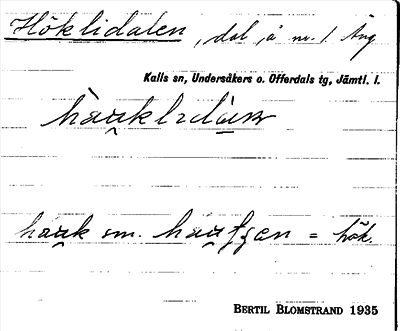 Höklidalen, dal, å nr. 1 Äng
Kalls sn, Undersåkers o. Offerdals tg, Jämtl. l.
hàu̯klıdàɯn
hau̯k sm. hau̯tʃen = hök.
BERTIL BLOMSTRAND 1935